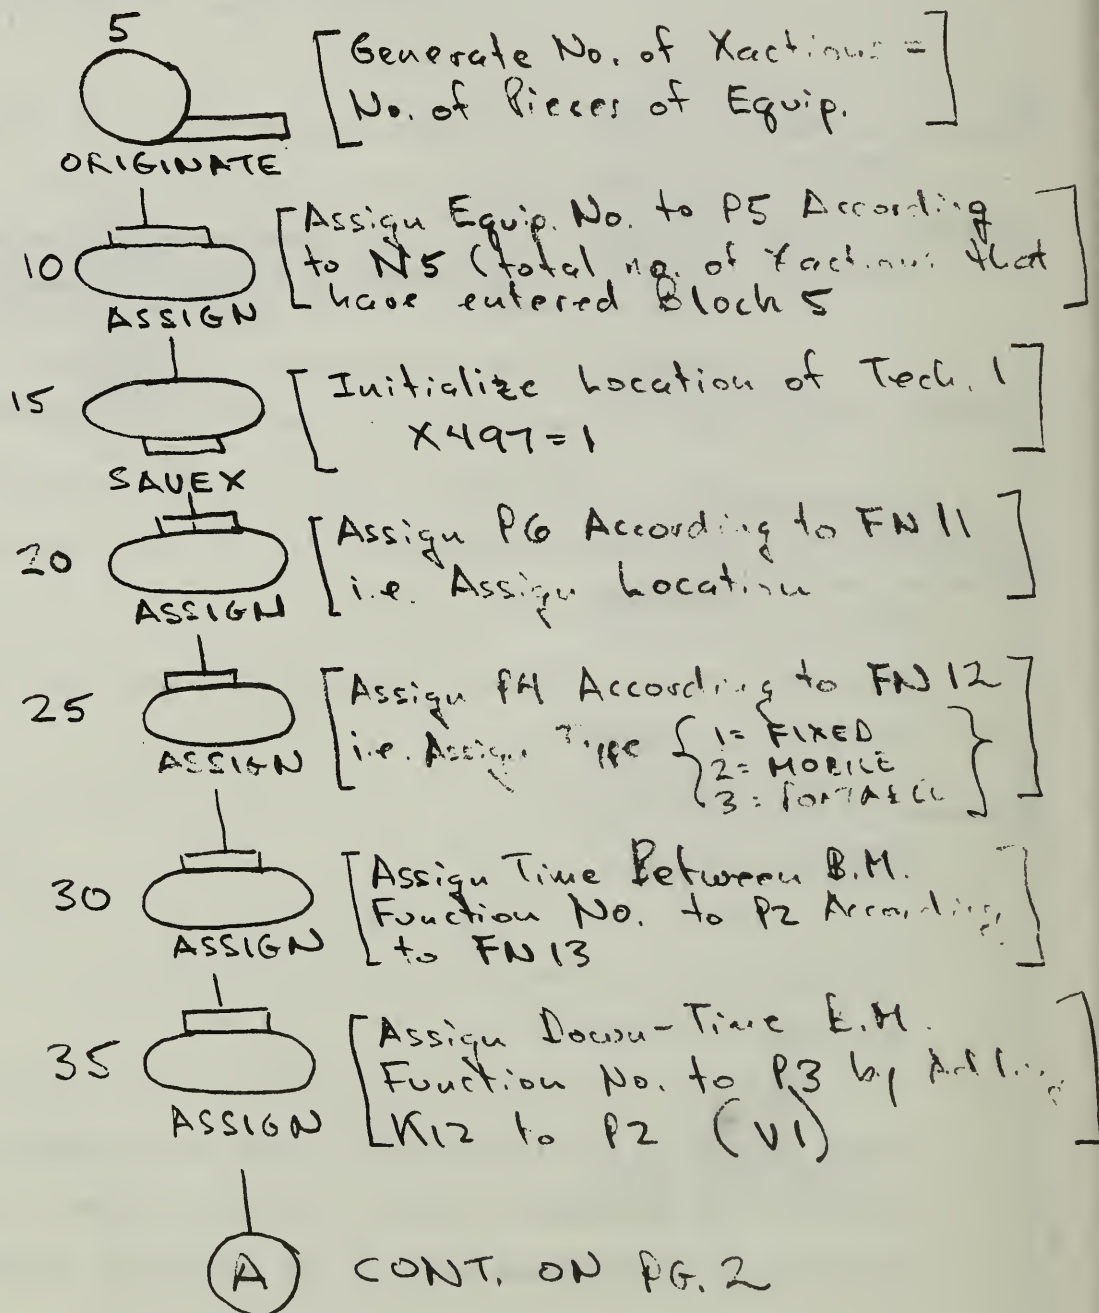 5
ORIGINATE
[Generate No. of Xactions =
No. of Pieces of Equip.]
10
ASSIGN
[Assign Equip. No. to P5 According
to N5 (total no. of Xactions that
have entered Block 5]
15
SAVEX
[Initialize Location of Tech. 1
X497=1]
20
ASSIGN
[Assign P6 According to FN 11
i.e. Assign Location]
25
ASSIGN
[Assign P4 According to FN 12
i.e. Assign Type {1= FIXED
2= MOBILE
3= PORTABLE}]
30
ASSIGN
[Assign Time Between B.M.
Function No. to P2 According
to FN 13]
35
ASSIGN
[Assign Down-Time E.M.
Function No. to P3 by Adding
K12 to P2 (V1)]
A CONT. ON PG. 2